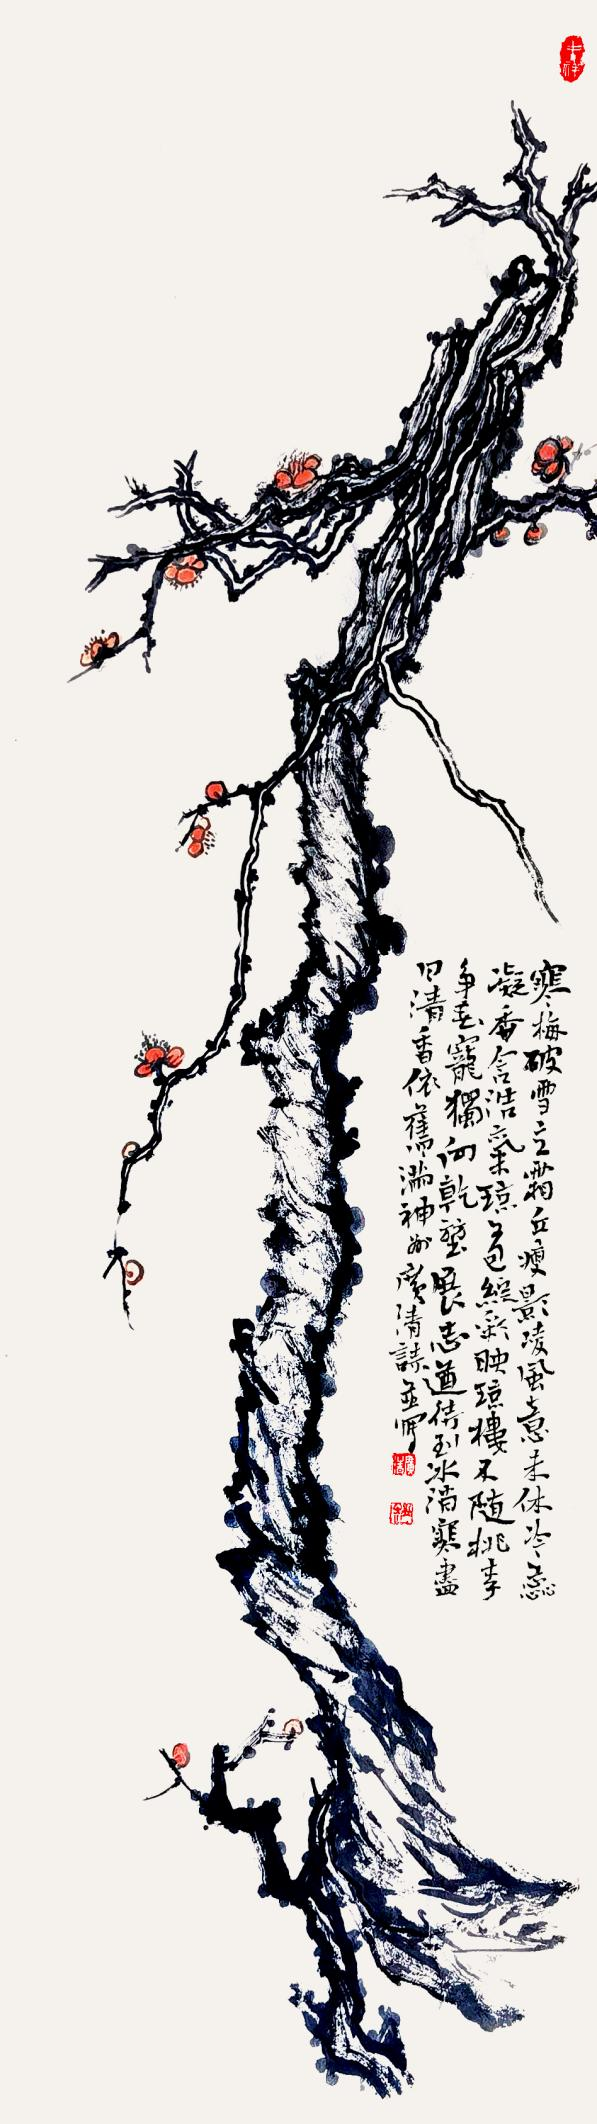 寒梅破雪立霜丘瘦影凌風意未休冷蕊
凝香含浩氣琼苞綻彩映琼樓不隨桃李
争春寵獨向乾堃展志遒待到冰消寒盡
日清香依舊滿神州廣清詩並畫